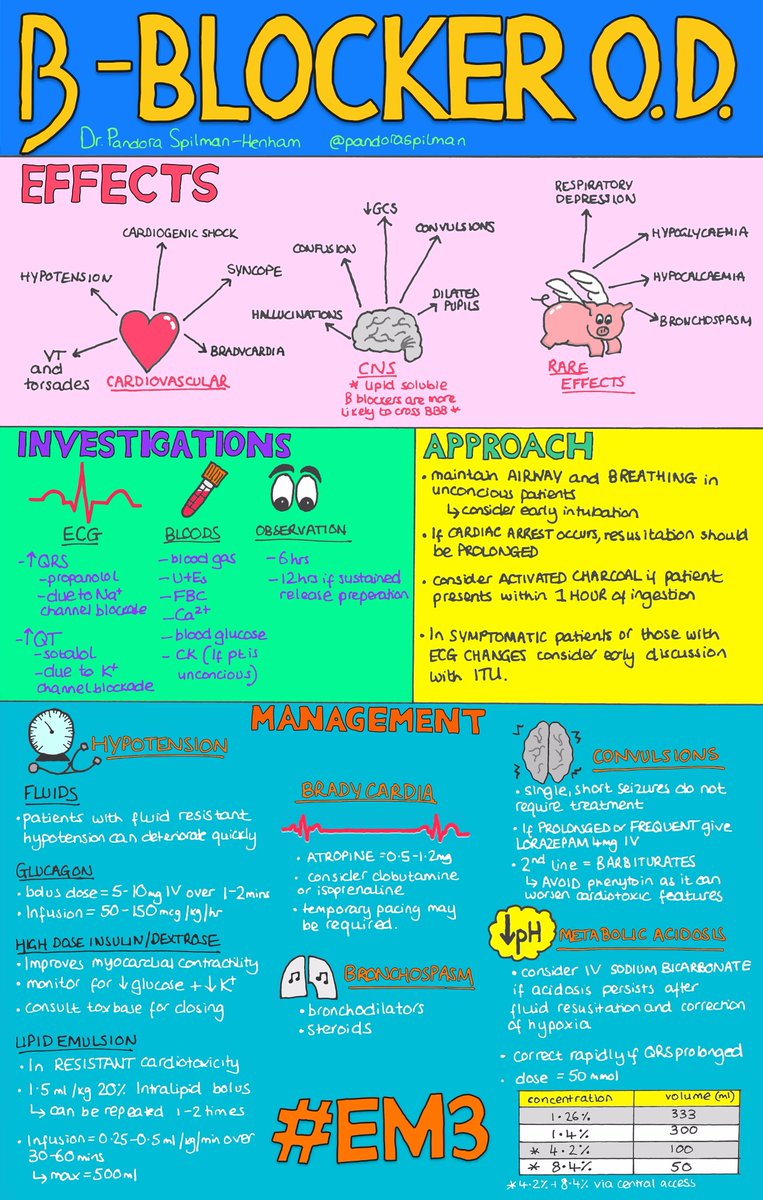 β-BLOCKER O.D.
Dr. Pandora Spilman-Henham @pandoraspilman
EFFECTS
CARDIOGENIC SHOCK
HYPOTENSION
SYNCOPE
VT
and
torsades
BRADYCARDIA
CARDIOVASCULAR
↓GCS
CONFUSION
CONVULSIONS
HALLUCINATIONS
DILATED
PUPILS
CNS
* lipid soluble
B blockers are more
likely to cross BBB *
RESPIRATORY
DEPRESSION
HYPOGLYCAEMIA
HYPOCALCAEMIA
BRONCHOSPASM
RARE
EFFECTS
INVESTIGATIONS
ECG
-↑QRS
-propanolol
-due to Na⁺
channel blockade
-↑QT
-sotalol
-due to K⁺
channel blockade
BLOODS
-blood gas
-U+Es
-FBC
-Ca²⁺
-blood glucose
-CK (If pt is
unconcious)
OBSERVATION
-6hrs
-12hrs if sustained
release preperation
APPROACH
• maintain AIRWAY and BREATHING in
unconcious patients
↳ consider early intubation
• If CARDIAC ARREST occurs, resusitation should
be PROLONGED
• consider ACTIVATED CHARCOAL if patient
presents within 1 HOUR of ingestion
• In SYMPTOMATIC patients or those with
ECG CHANGES consider early discussion
with ITU.
MANAGEMENT
HYPOTENSION
FLUIDS
• patients with fluid resistant
hypotension can deteriorate quickly
GLUCAGON
• bolus dose = 5-10mg IV over 1-2mins
• Infusion = 50-150mcg/kg/hr
HIGH DOSE INSULIN/DEXTROSE
• Improves myocardial contractility
• monitor for ↓glucose + ↓K⁺
• consult toxbase for closing
LIPID EMULSION
• In RESISTANT cardiotoxicity
• 1.5ml/kg 20% Intralipid bolus
↳ can be repeated 1-2 times
• Infusion = 0.25-0.5ml/kg/min over
30-60mins
↳ max = 500ml
BRADYCARDIA
• ATROPINE = 0.5-1.2mg
• consider dobutamine
or isoprenaline
• temporary pacing may
be required.
BRONCHOSPASM
• bronchodilators
• steroids
#EM3
CONVULSIONS
• single, short seizures do not
require treatment
• If PROLONGED or FREQUENT give
LORAZEPAM 4mg IV
• 2nd line = BARBITURATES
↳ AVOID phenytoin as it can
worsen cardiotoxic features
↓pH
METABOLIC ACIDOSIS
• consider IV SODIUM BICARBONATE
if acidosis persists after
fluid resusitation and correction
of hypoxia
• correct rapidly if QRS prolonged
• dose = 50mmol
concentration volume (ml)
1.26% 333
1.4% 300
* 4.2% 100
* 8.4% 50
* 4.2% + 8.4% via central access